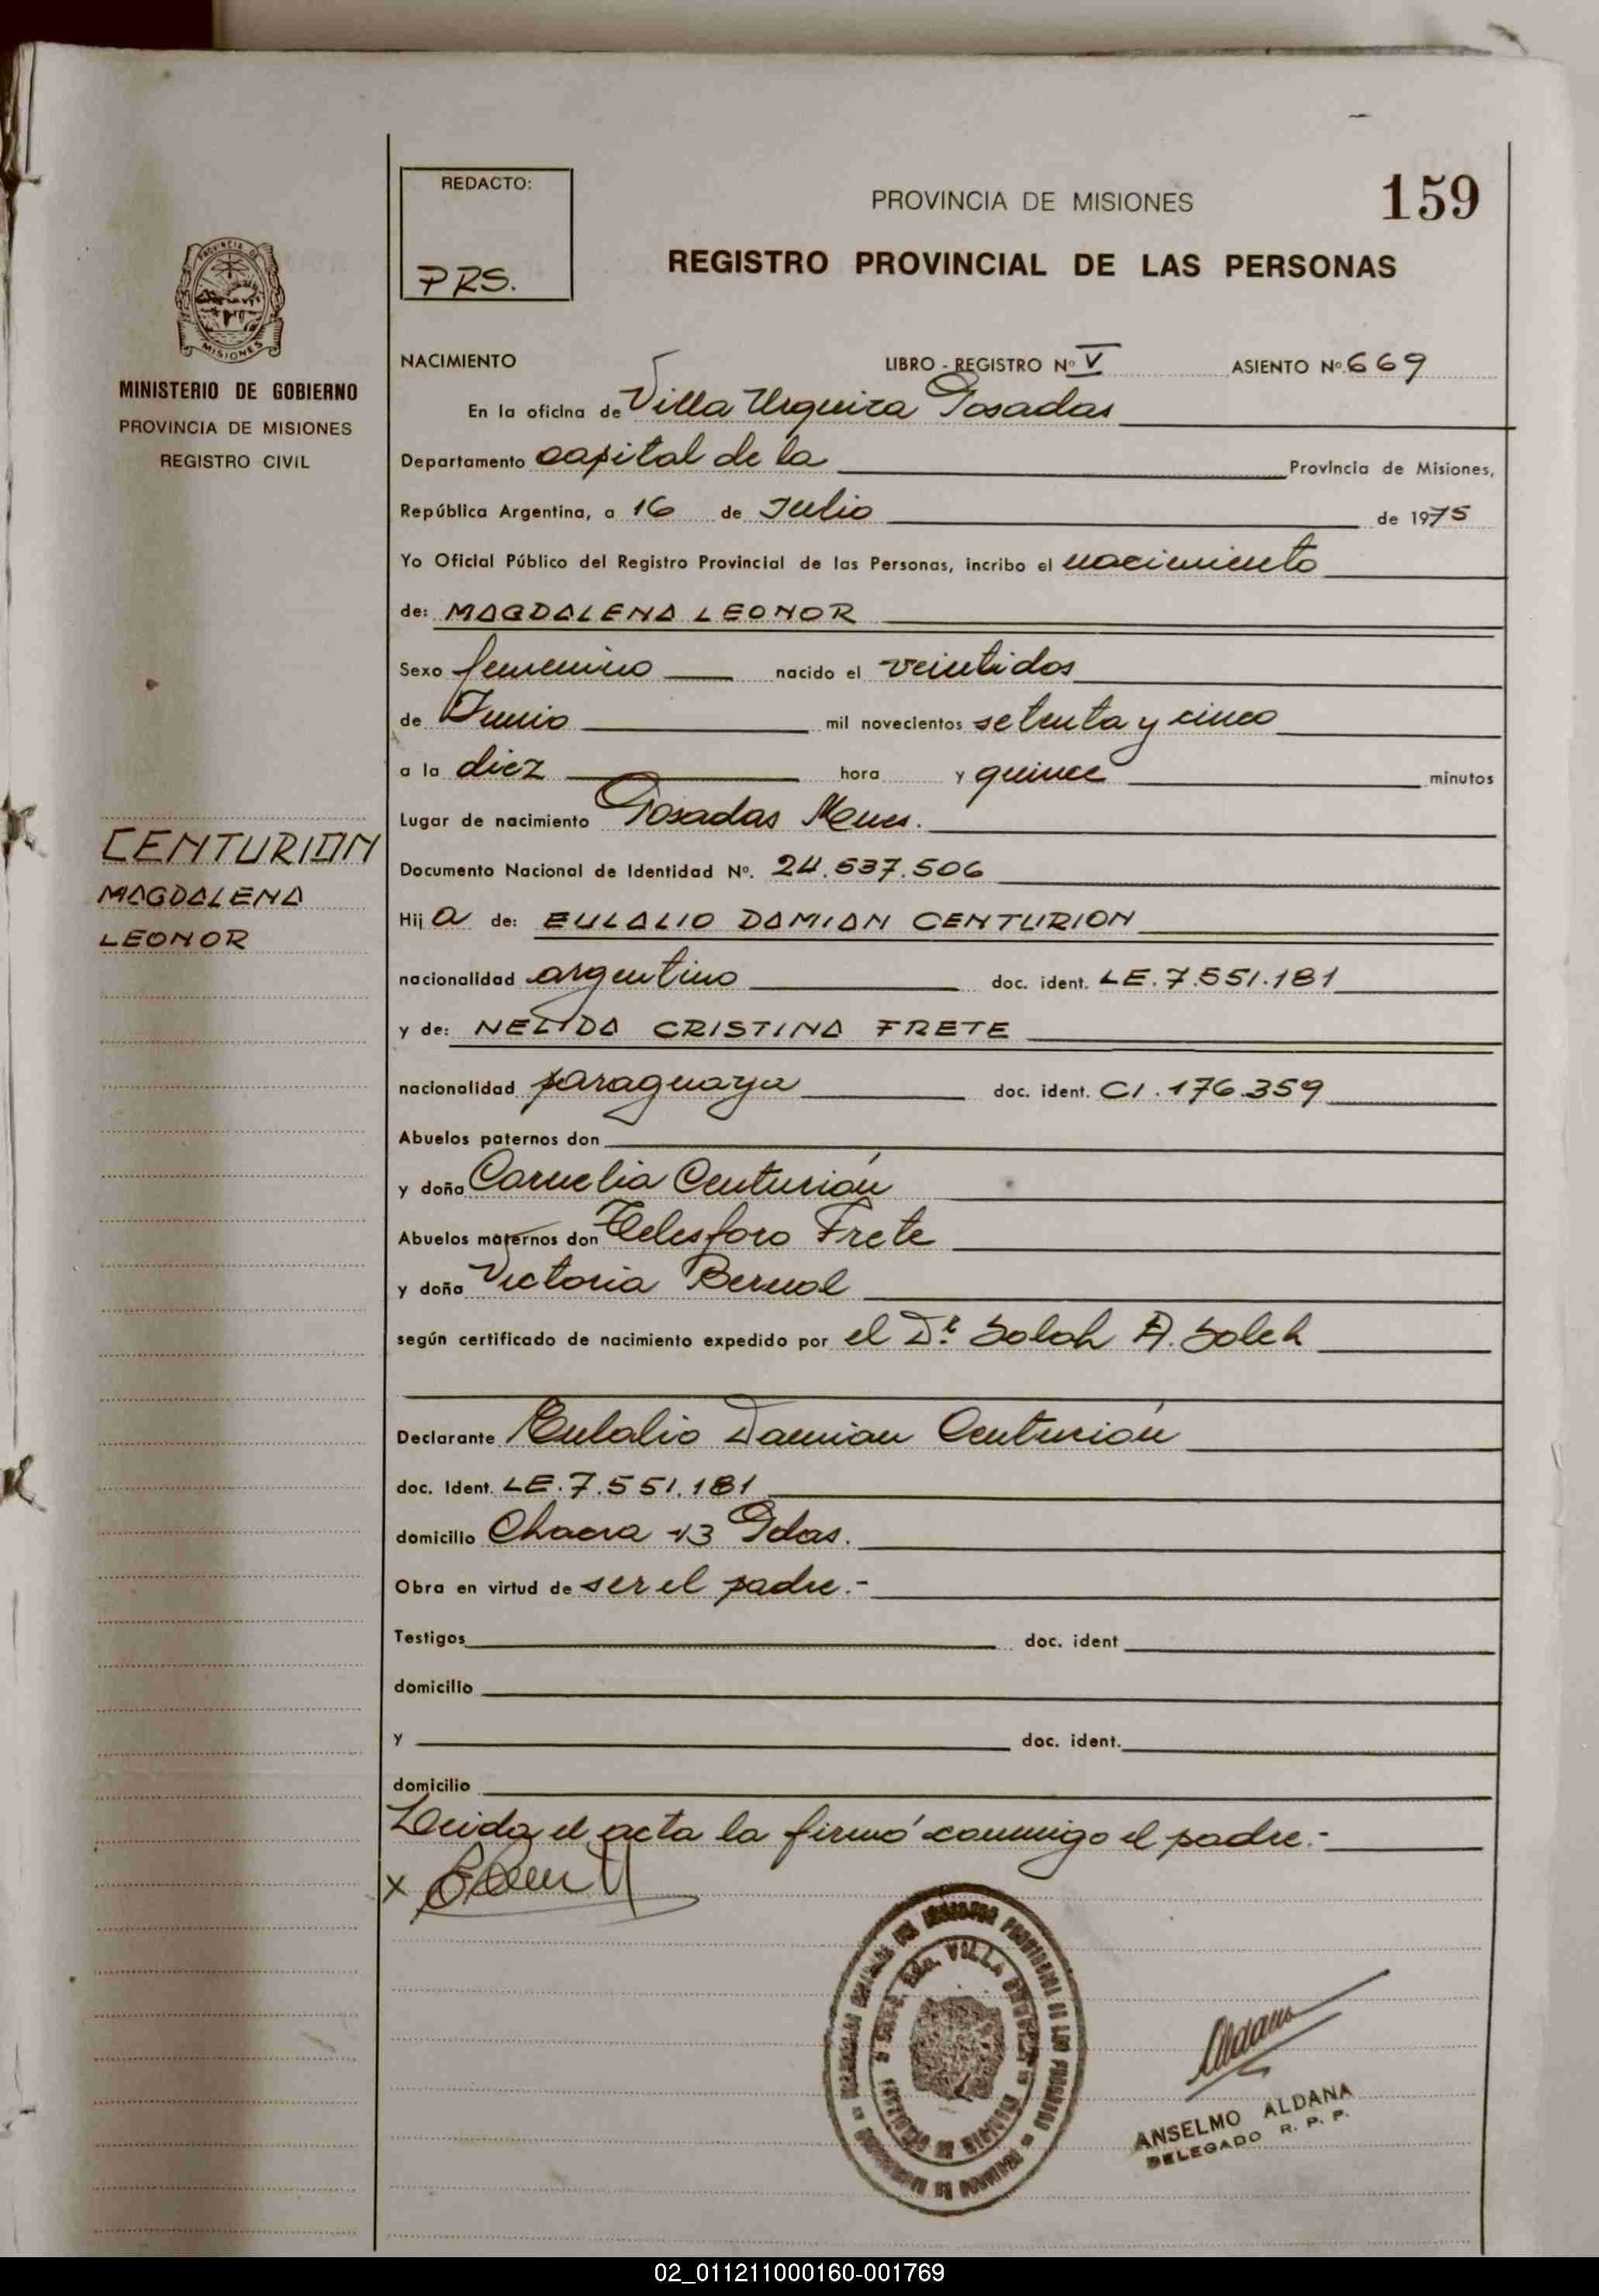 REDACTO:
PRS.
PROVINCIA DE MISIONES
159
REGISTRO PROVINCIAL DE LAS PERSONAS
MISIONES
MINISTERIO DE GOBIERNO
PROVINCIA DE MISIONES
REGISTRO CIVIL
CENTURION
MAGDALENA
LEONOR
NACIMIENTO LIBRO - REGISTRO Nº V ASIENTO Nº 669
En la oficina de Villa Urquiza Posadas
Departamento capital de la Provincia de Misiones,
República Argentina, a 16 de Julio de 1975
Yo Oficial Público del Registro Provincial de las Personas, incribo el nacimiento
de: MAGDALENA LEONOR
Sexo femenino nacido el veintidos
de Junio mil novecientos setenta y cinco
a la diez hora y quince minutos
Lugar de nacimiento Posadas Mnes.
Documento Nacional de Identidad Nº. 24.537.506
Hij a de: EULALIO DAMIAN CENTURION
nacionalidad argentino doc. ident. LE.7.551.181
y de: NELIDA CRISTINA FRETE
nacionalidad paraguaya doc. ident. CI.176.359
Abuelos paternos don
y doña Cornelia Centurión
Abuelos maternos don Telesforo Frete
y doña Victoria Bernal
según certificado de nacimiento expedido por el Dr. Soloh A. Soleh
Declarante Eulalio Damian Centurión
doc. Ident. LE.7.551.181
domicilio Chacra 43 Pdas.
Obra en virtud de ser el padre.-
Testigos doc. ident
domicilio
y doc. ident.
domicilio
Leida el acta la firmó conmigo el padre.-
x
VILLA
Aldana
ANSELMO ALDANA
DELEGADO R. P. P.
02_011211000160-001769